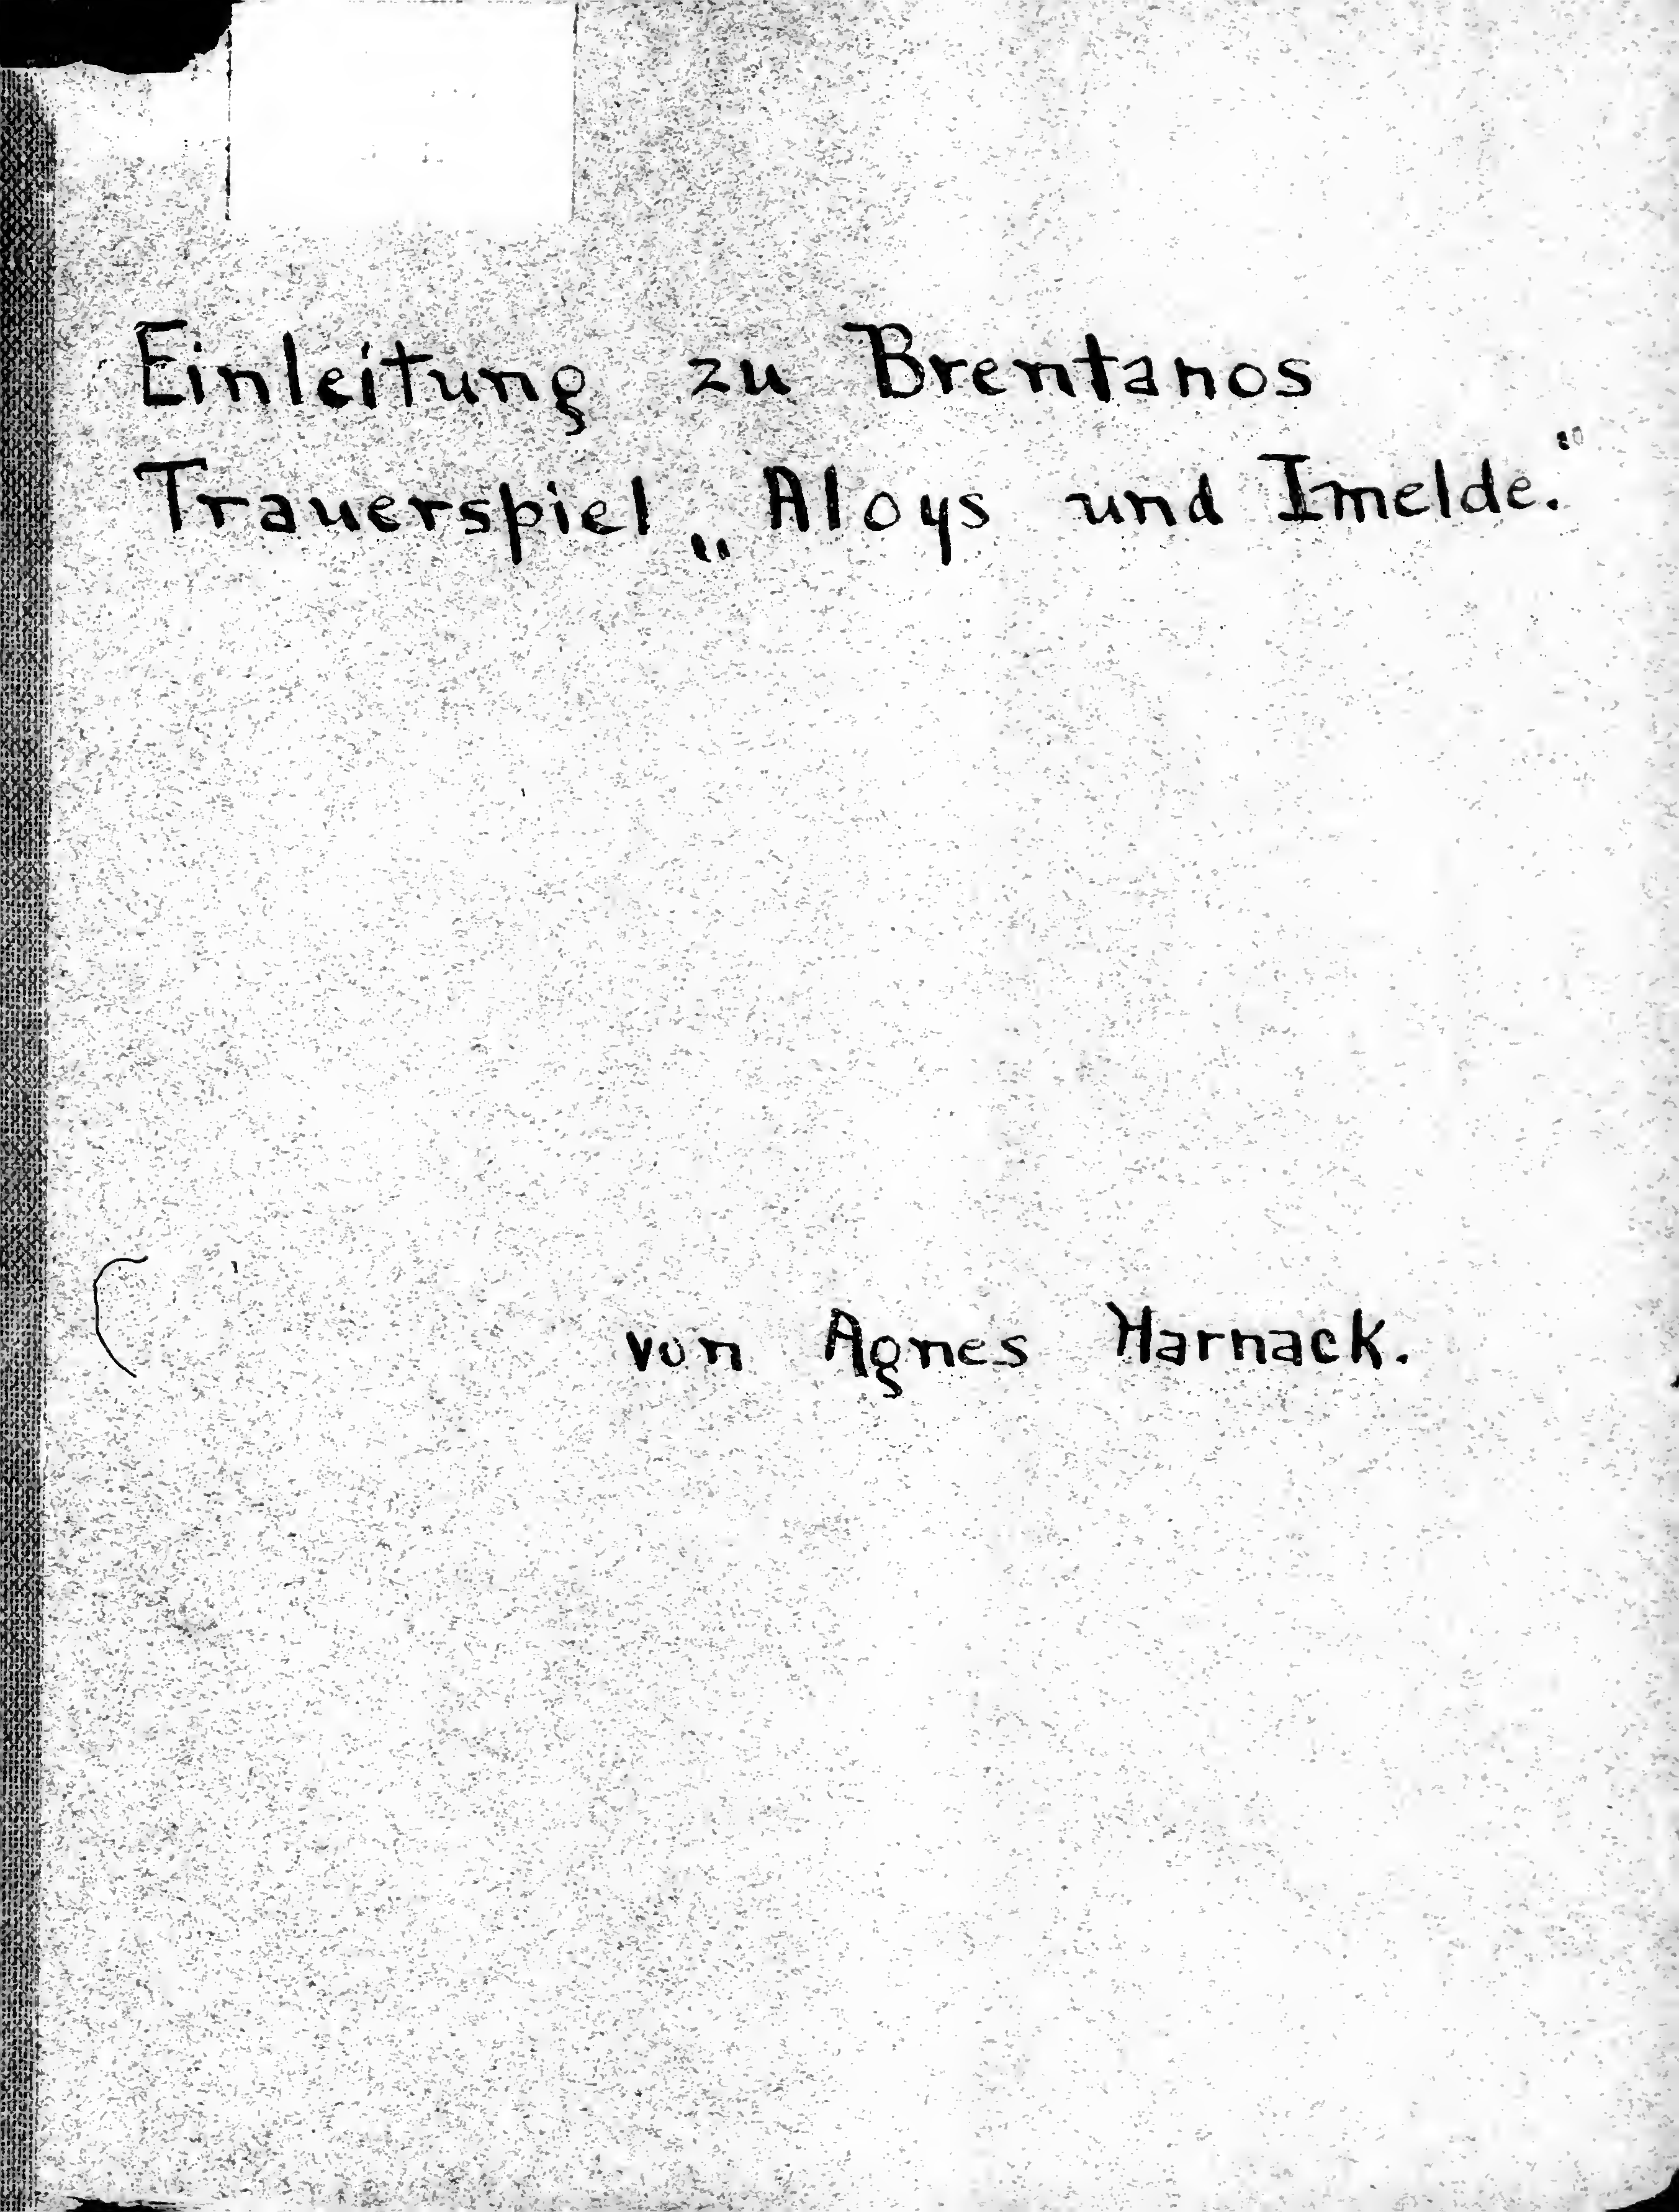 Einleitung zu Brentanos
Trauerspiel „Aloys und Imelde."
von Agnes Harnack.